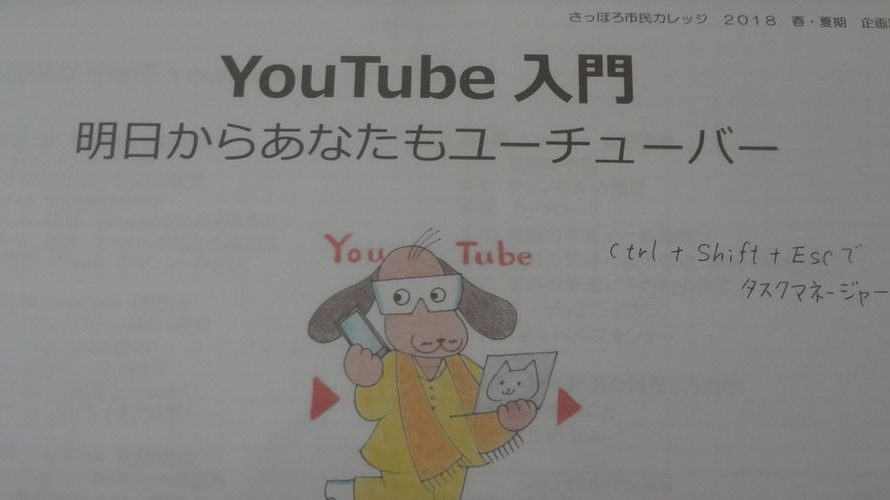 さっぽろ市民カレッジ 2018 春・夏期 企画
YouTube 入門
明日からあなたもユーチューバー
You Tube
Ctrl + Shift + Escで
タスクマネージャー